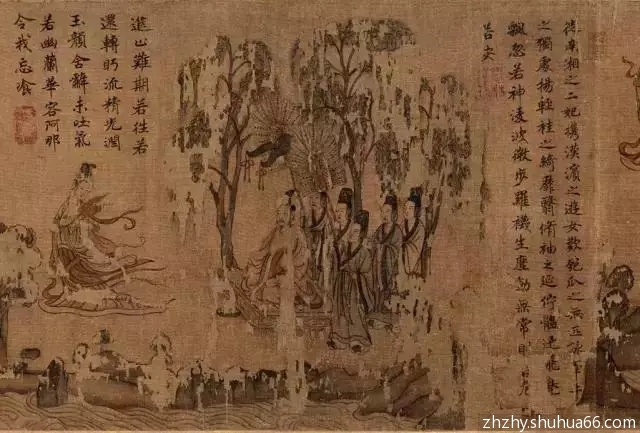 從南湘之二妃攜漢濱之遊女歎匏瓜之無匹詠牽
之獨處揚輕袿之綺靡翳脩袖之延佇體迅飛鳧
飄忽若神凌波微步羅襪生塵動無常則若危
若安
進止難期若往若
還轉眄流精光潤
玉顏含辭未吐氣
若幽蘭華容阿那
令我忘飡
zhzhy.shuhua66.com